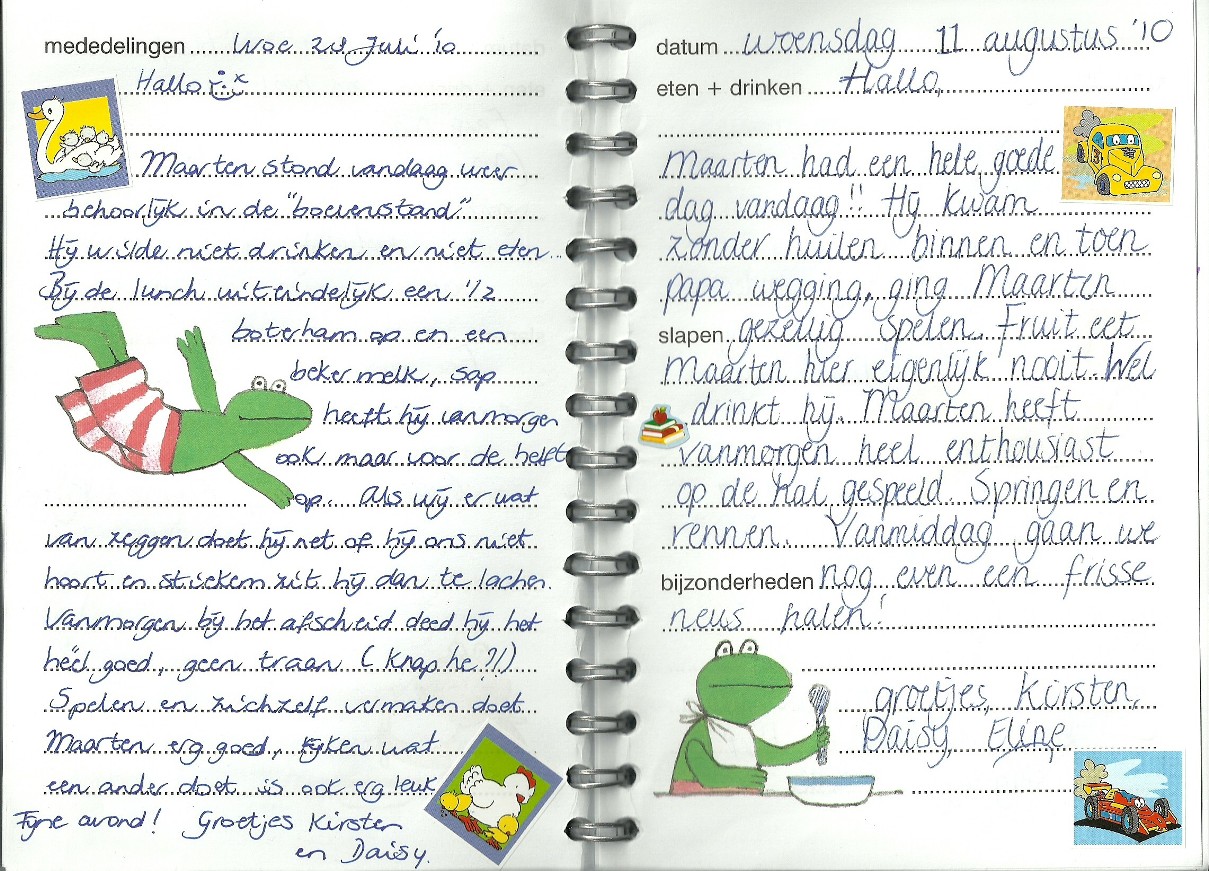 mededelingen Woe 28 Juli '10
Hallo
Maarten stond vandaag weer
behoorlijk in de "boevenstand".
Hij wilde niet drinken en niet eten
Bij de lunch uiteindelijk een 1/2
boterham op en een
beker melk, sap
heeft hij vanmorgen
ook maar voor de helft
op. Als wij er wat
van zeggen doet hij net of hij ons niet
hoort en stiekem zit hij dan te lachen.
Vanmorgen bij het afscheid deed hij het
héél goed, geen traan (Knap he?!!)
Spelen en zichzelf vermaken doet
Maarten erg goed, kijken wat
een ander doet is ook erg leuk
Fijne avond! Groetjes Kirsten
en Daisy.
datum woensdag 11 augustus '10
eten + drinken Hallo,
Maarten had een hele goede
dag vandaag!! Hij kwam
zonder huilen binnen en toen
papa wegging, ging Maarten
slapen gezellig spelen. Fruit eet
Maarten hier eigenlijk nooit. Wel
drinkt hij. Maarten heeft
vanmorgen heel enthousiast
op de hal gespeeld. Springen en
rennen. Vanmiddag gaan we
bijzonderheden nog even een frisse
neus halen!
groetjes, Kirsten,
Daisy, Eline